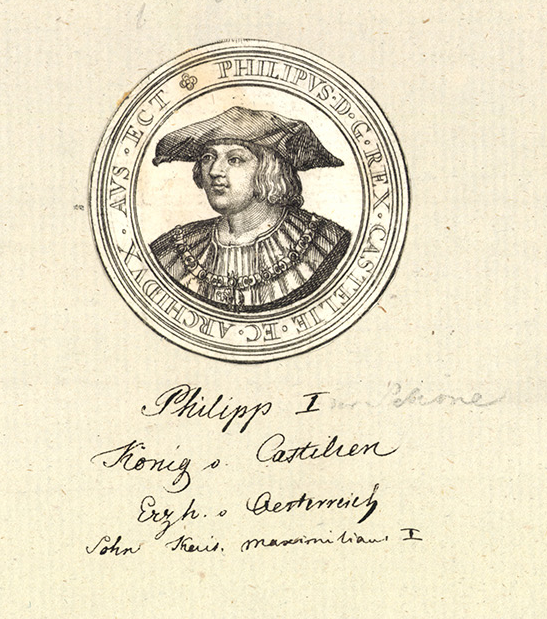 PHILIPVS·D·G·REX·CASTELIE·EC·ARCHIDVX·AVS·ECT
Philipp I der Schöne
König v. Castilien
Erzh. v Oesterreich
Sohn Kais. Maximilian. I